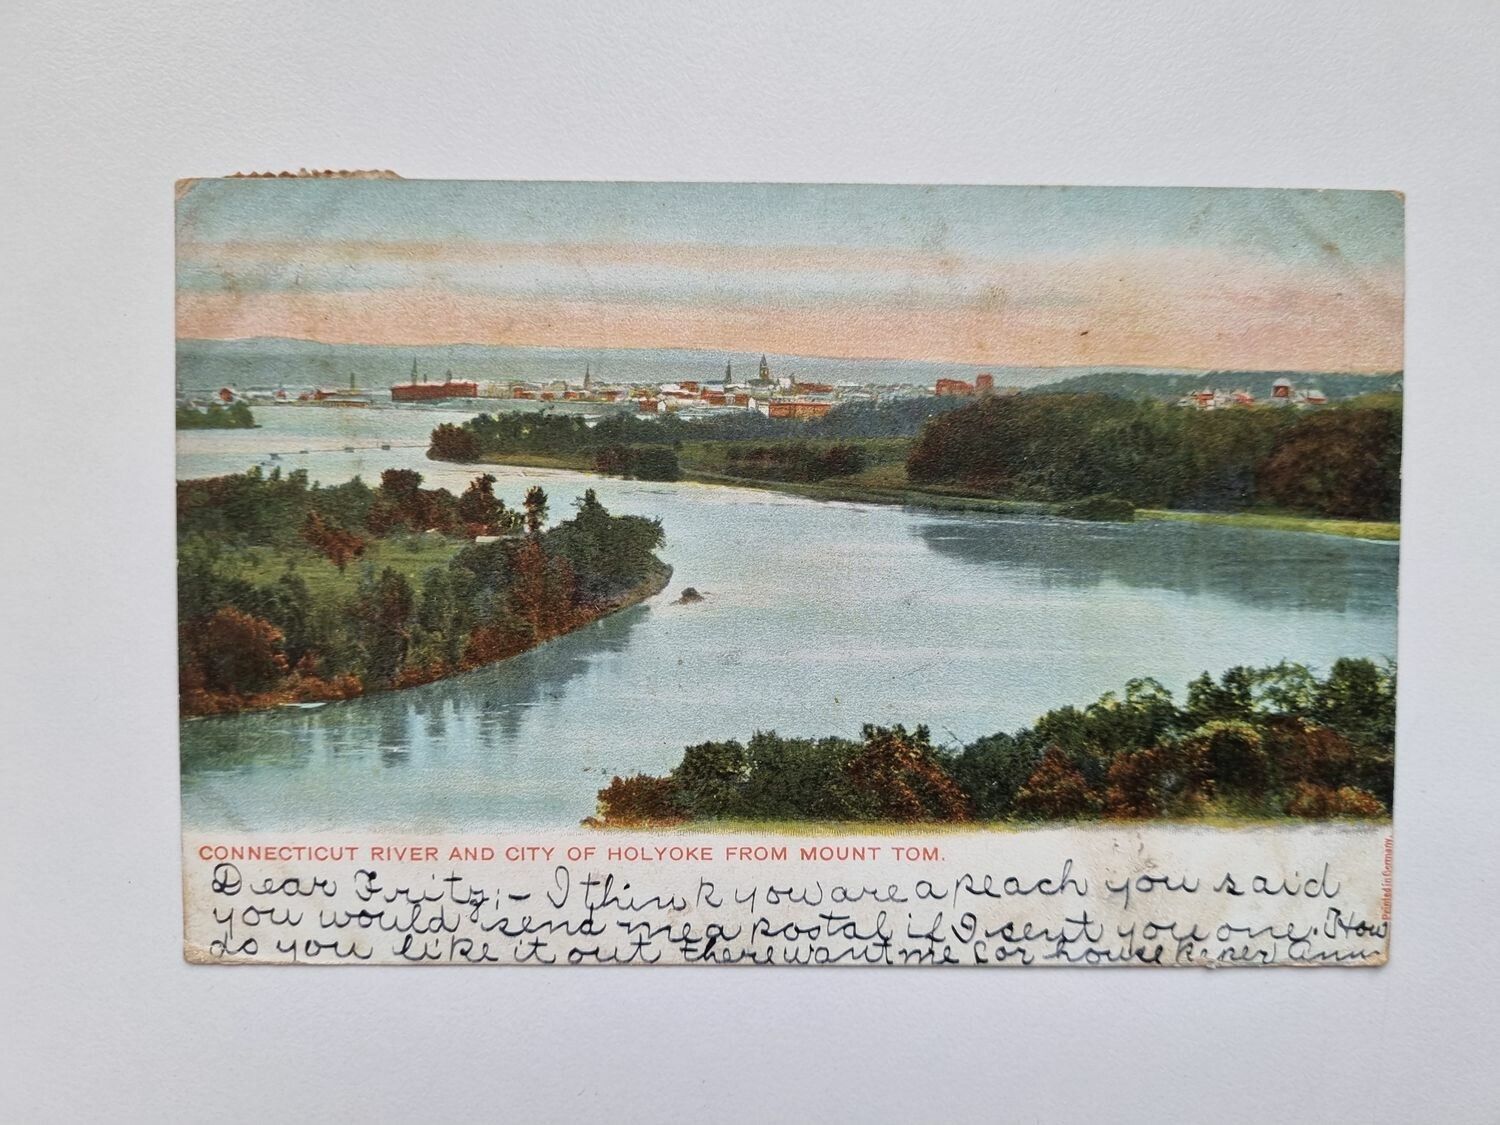 CONNECTICUT RIVER AND CITY OF HOLYOKE FROM MOUNT TOM.
Printed in Germany.
Dear Fritz;- I think you are a peach you said
you would send me a postal if I sent you one. How
do you like it out there want me for house keeper Ann